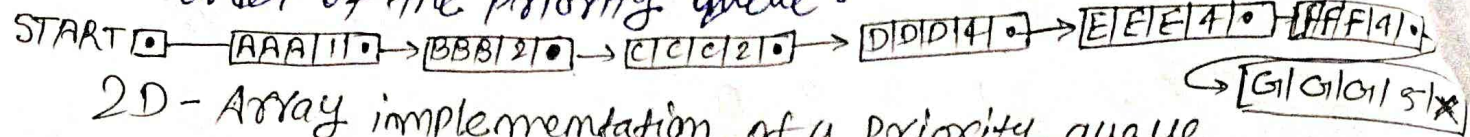 order of the priority queue.
START [•] — [AAA|1|•] → [BBB|2|•] → [C|C|C|2|•] → [D|D|D|4|•] → [E|E|E|4|•] [FFF|4|•]
[G|G|G|5|×]
2D - Array implementation of a priority queue